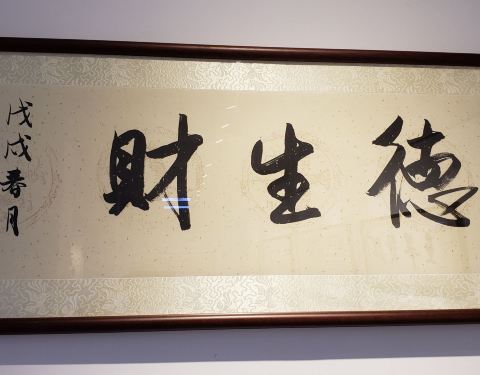 德生財
戊戌春月